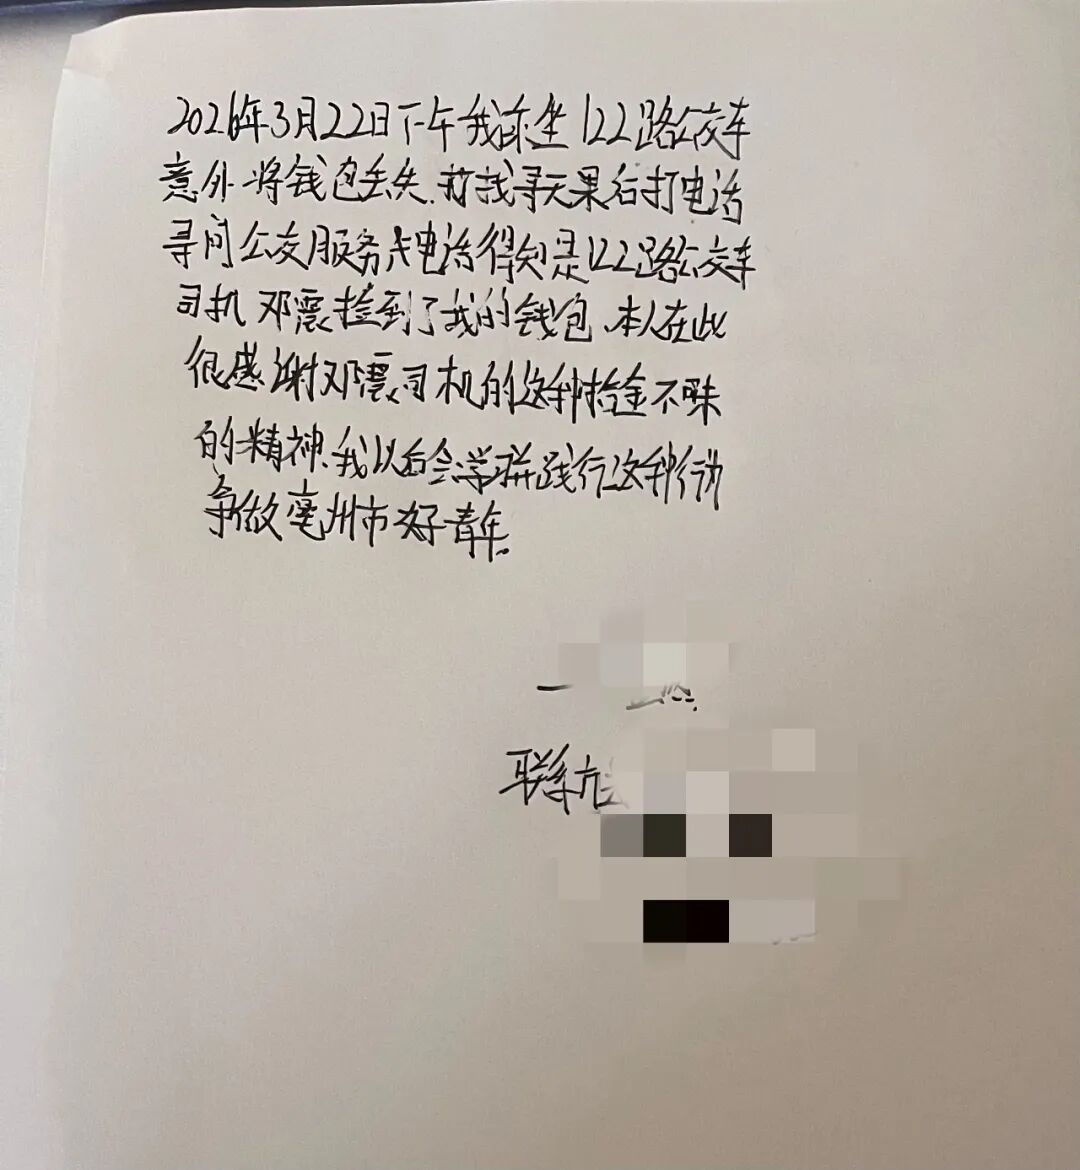 2026年3月22日下午我乘坐122路公交车
意外将钱包丢失.找寻无果后打电话
寻问公交服务点电话得知是122路公交车
司机邓震捡到了我的钱包、本人在此
很感谢邓震司机的这种拾金不昧
的精神.我以后会学习并践行这种行为
争做亳州市好青年.
联系方式